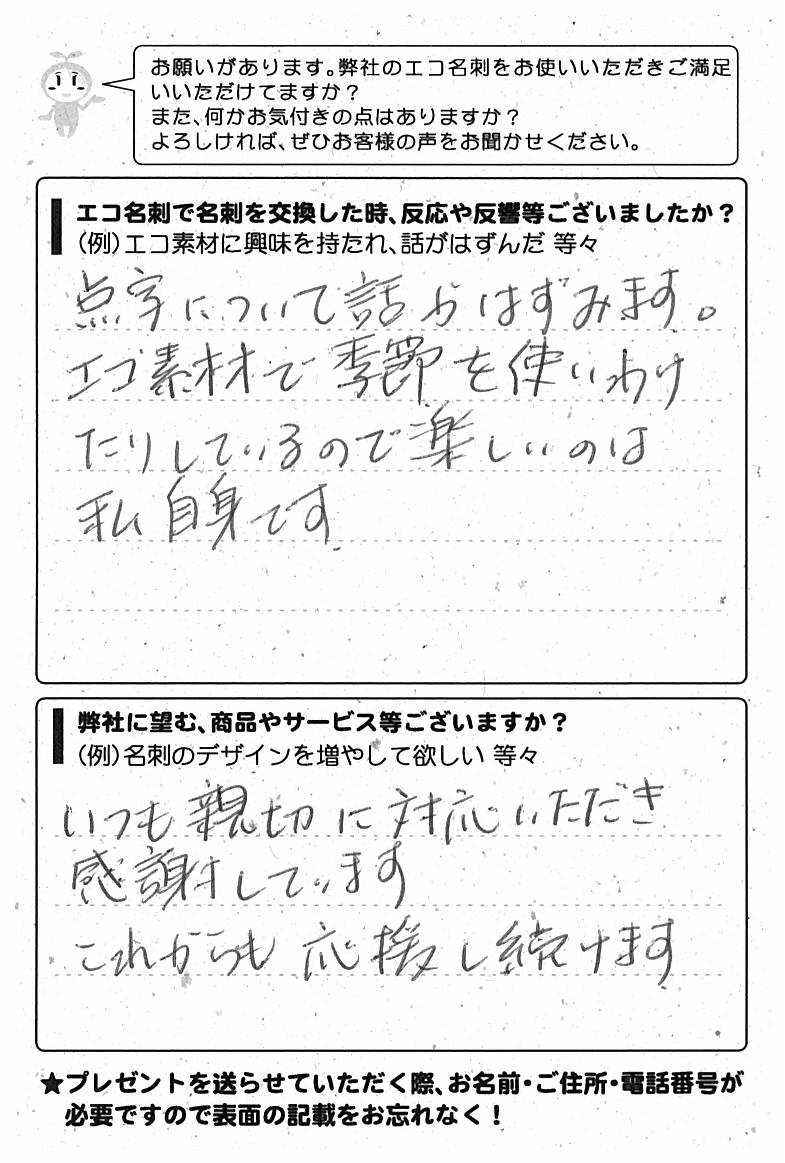 お願いがあります。弊社のエコ名刺をお使いいただきご満足
いいただけてますか?
また、何かお気付きの点はありますか?
よろしければ、ぜひお客様の声をお聞かせください。
エコ名刺で名刺を交換した時、反応や反響等ございましたか?
(例)エコ素材に興味を持たれ、話がはずんだ 等々
点字について話がはずみます。
エコ素材で季節を使いわけ
たりしているので楽しいのは
私自身です
弊社に望む、商品やサービス等ございますか?
(例)名刺のデザインを増やして欲しい 等々
いつも親切に対応いただき
感謝しています
これからも応援し続けます
★プレゼントを送らせていただく際、お名前・ご住所・電話番号が
必要ですので表面の記載をお忘れなく!